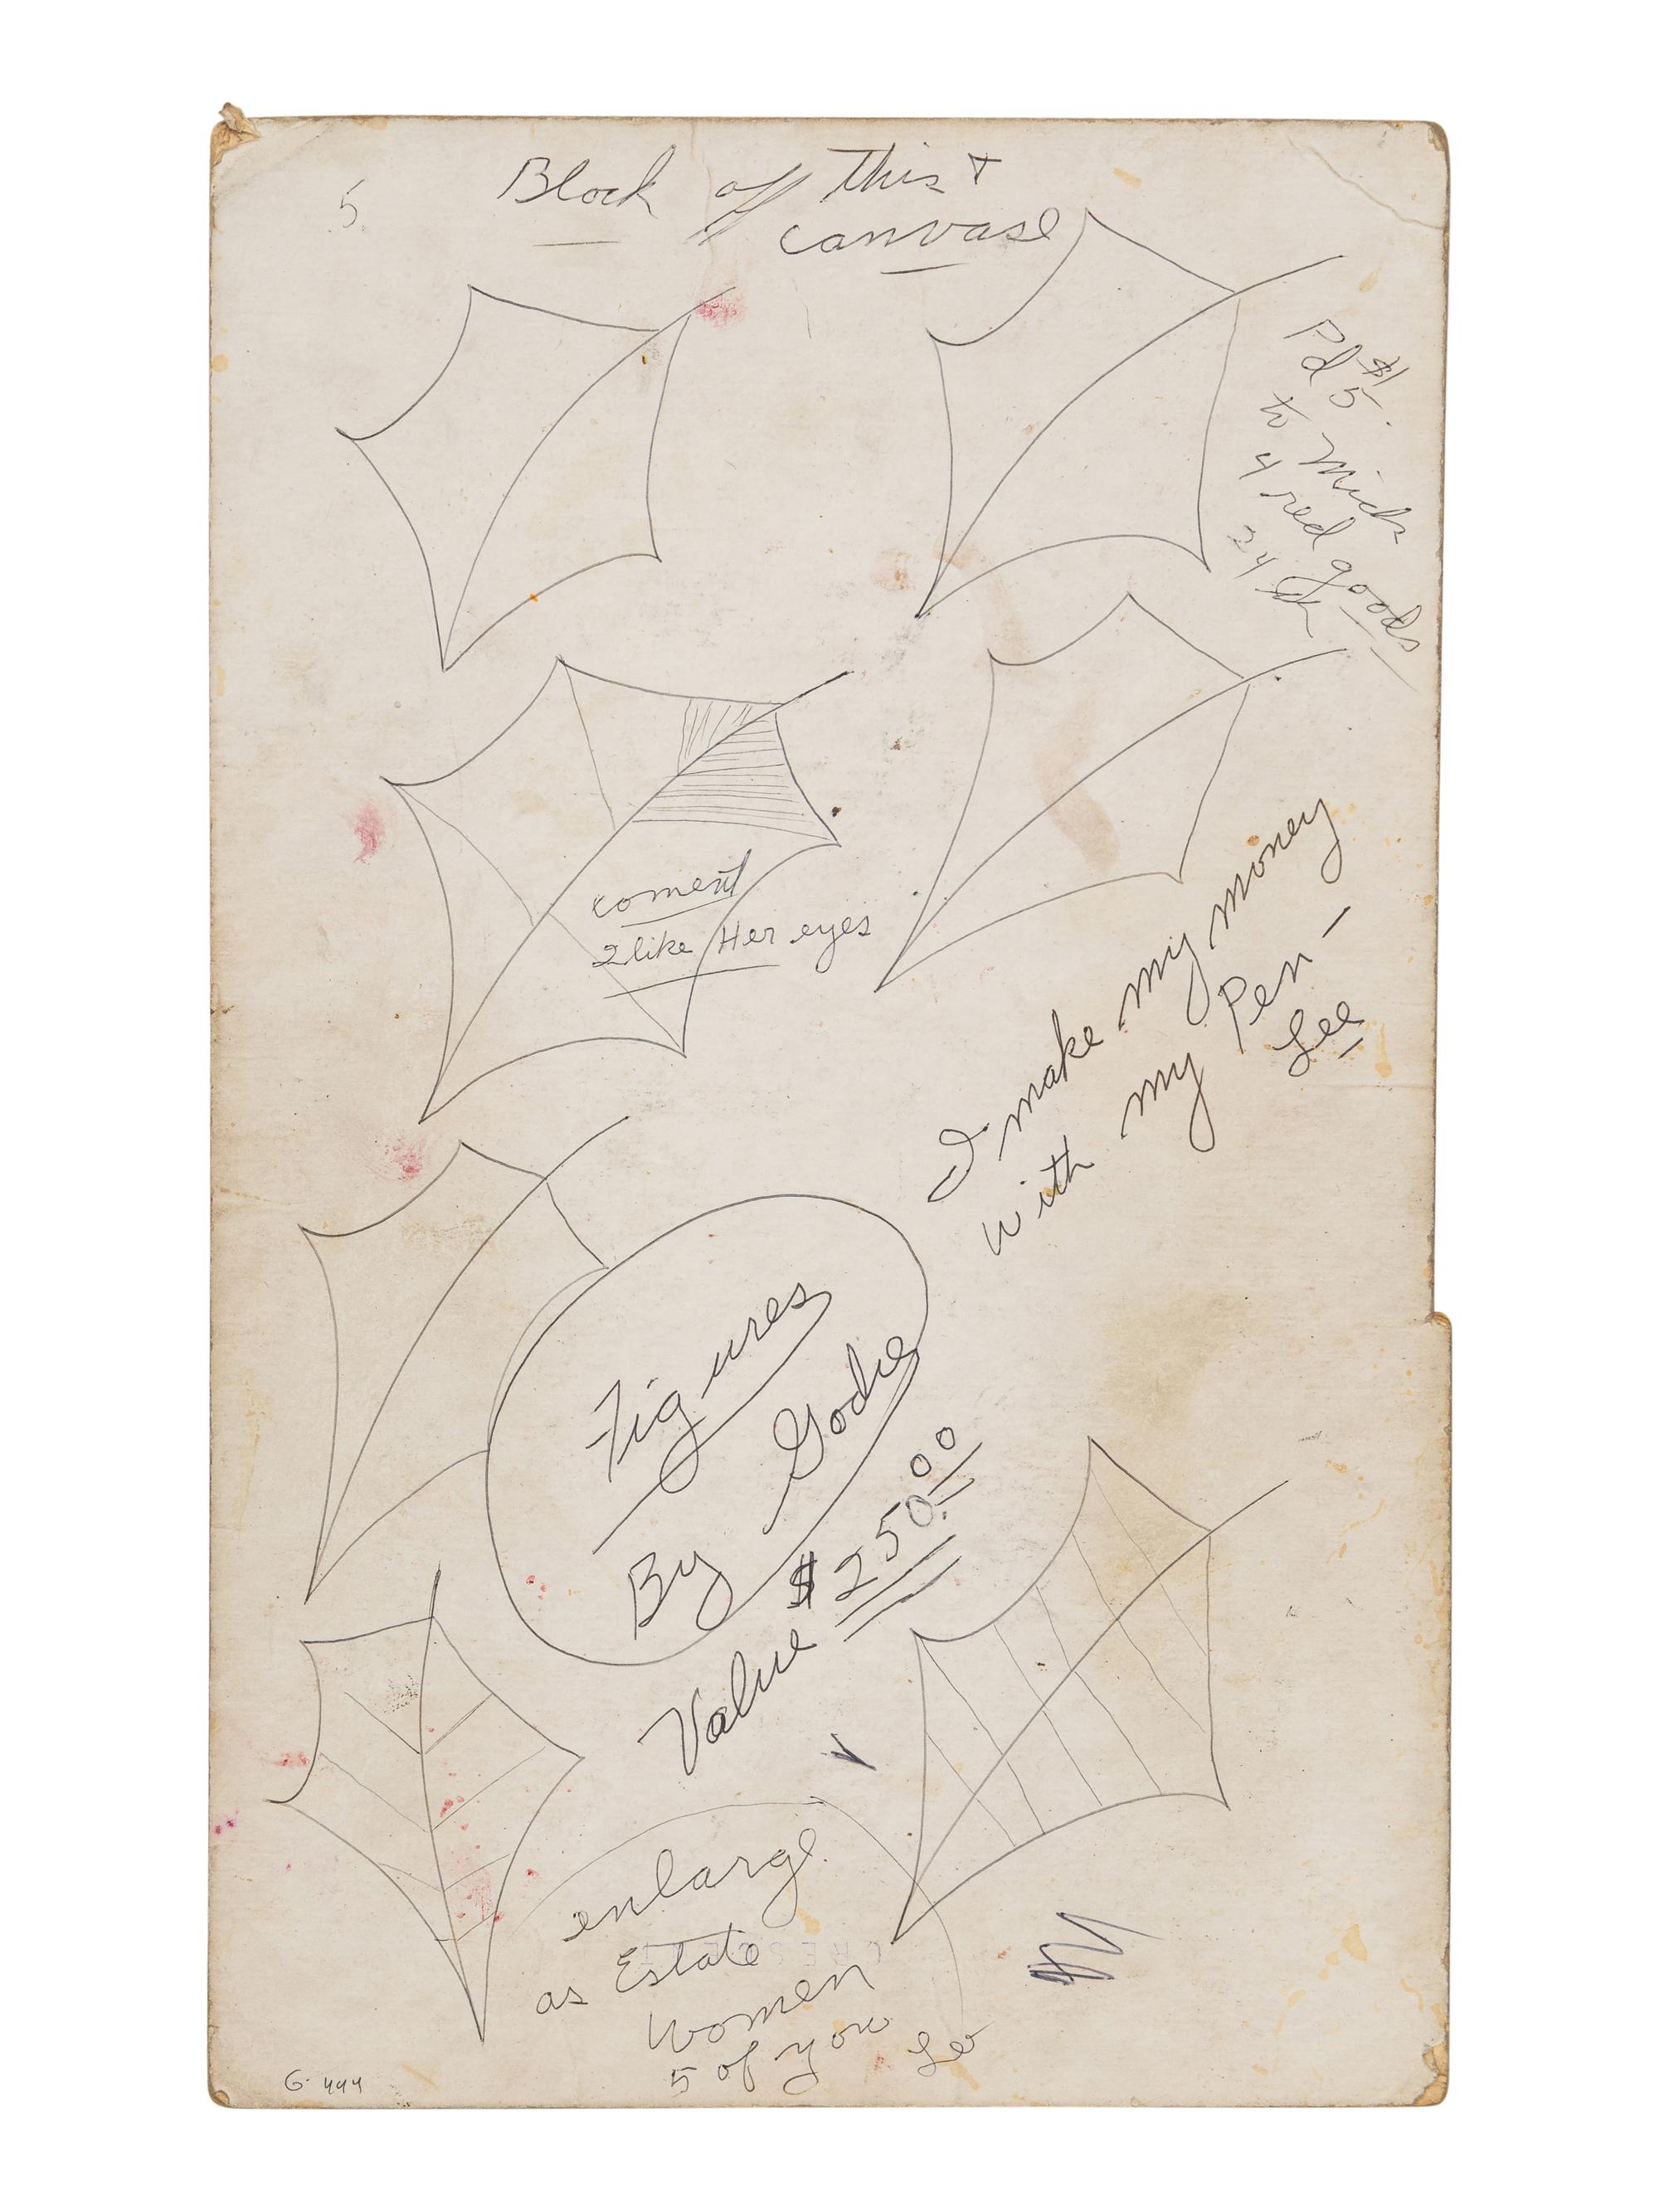 5
Block off this +
canvase
Pd $1
5.
to
4 red goods
24
coment
2 like Her eyes
I make my money
with my Pen -
Lee
Figures
By Godie
Value $250.00
enlarge
as Estate
Women
5 of you
G. 444